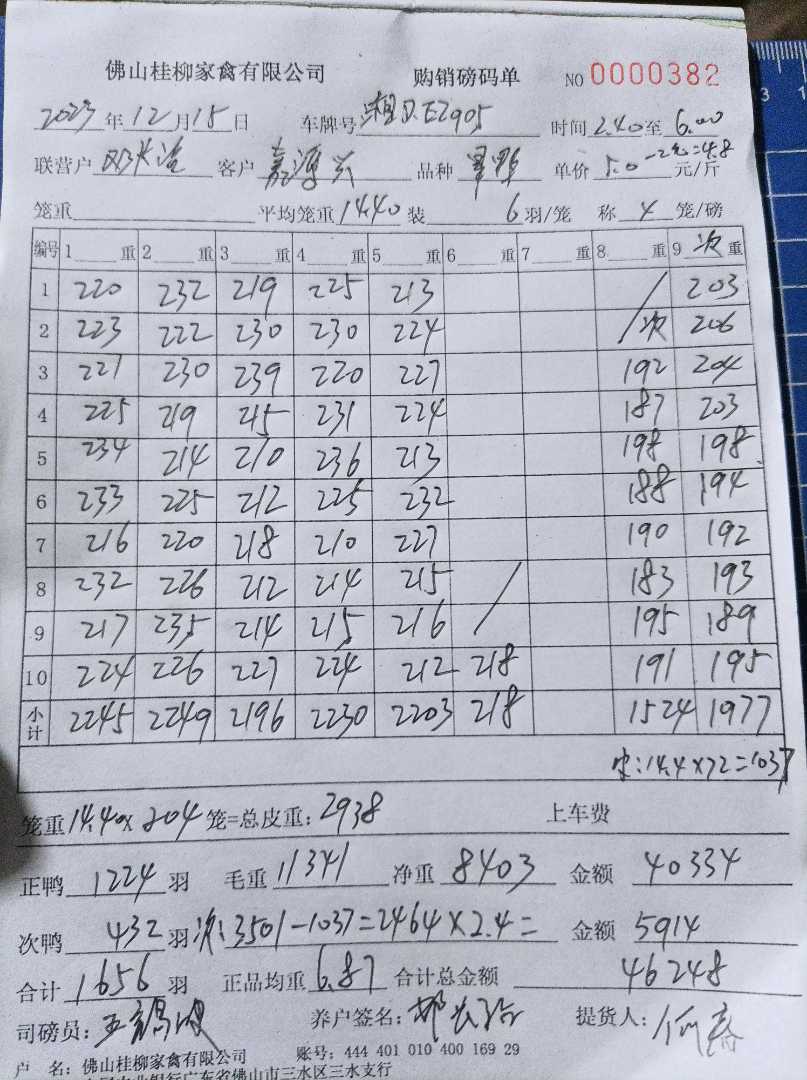 佛山桂柳家禽有限公司 购销磅码单 NO 0000382
2023年12月15日 车牌号 湘D.EZ905 时间 2.40至6.00
联营户 客户 嘉源兴 品种 单价 5.0-2毛=4.8元/斤
笼重 平均笼重14.40装 6羽/笼 称 4 笼/磅
编号 1 重 2 重 3 重 4 重 5 重 6 重 7 重 8 重 9 次重
1 220 232 219 225 213 / 203
2 223 222 230 230 224 / 次 206
3 221 230 239 220 227 192 204
4 225 219 215 231 224 187 203
5 234 214 210 236 213 198 198
6 233 225 212 225 232 188 194
7 216 220 218 210 227 190 192
8 232 226 212 214 215 / 183 193
9 217 235 214 215 216 195 189
10 224 226 227 224 212 218 191 195
小计 2245 2249 2196 2230 2203 218 1524 1977
:14.4×72=1037
笼重14.40×204笼=总皮重:2938 上车费
正鸭 1224 羽 毛重 11341 净重 8403 金额 40334
次鸭 432 羽 次:3501-1037=2464×2.4= 金额 5914
合计 1656 羽 正品均重 6.87 合计总金额 46248
司磅员: 养户签名: 提货人:
户 名:佛山桂柳家禽有限公司 账号:444 401 010 400 169 29
农业银行广东省佛山市三水区三水支行